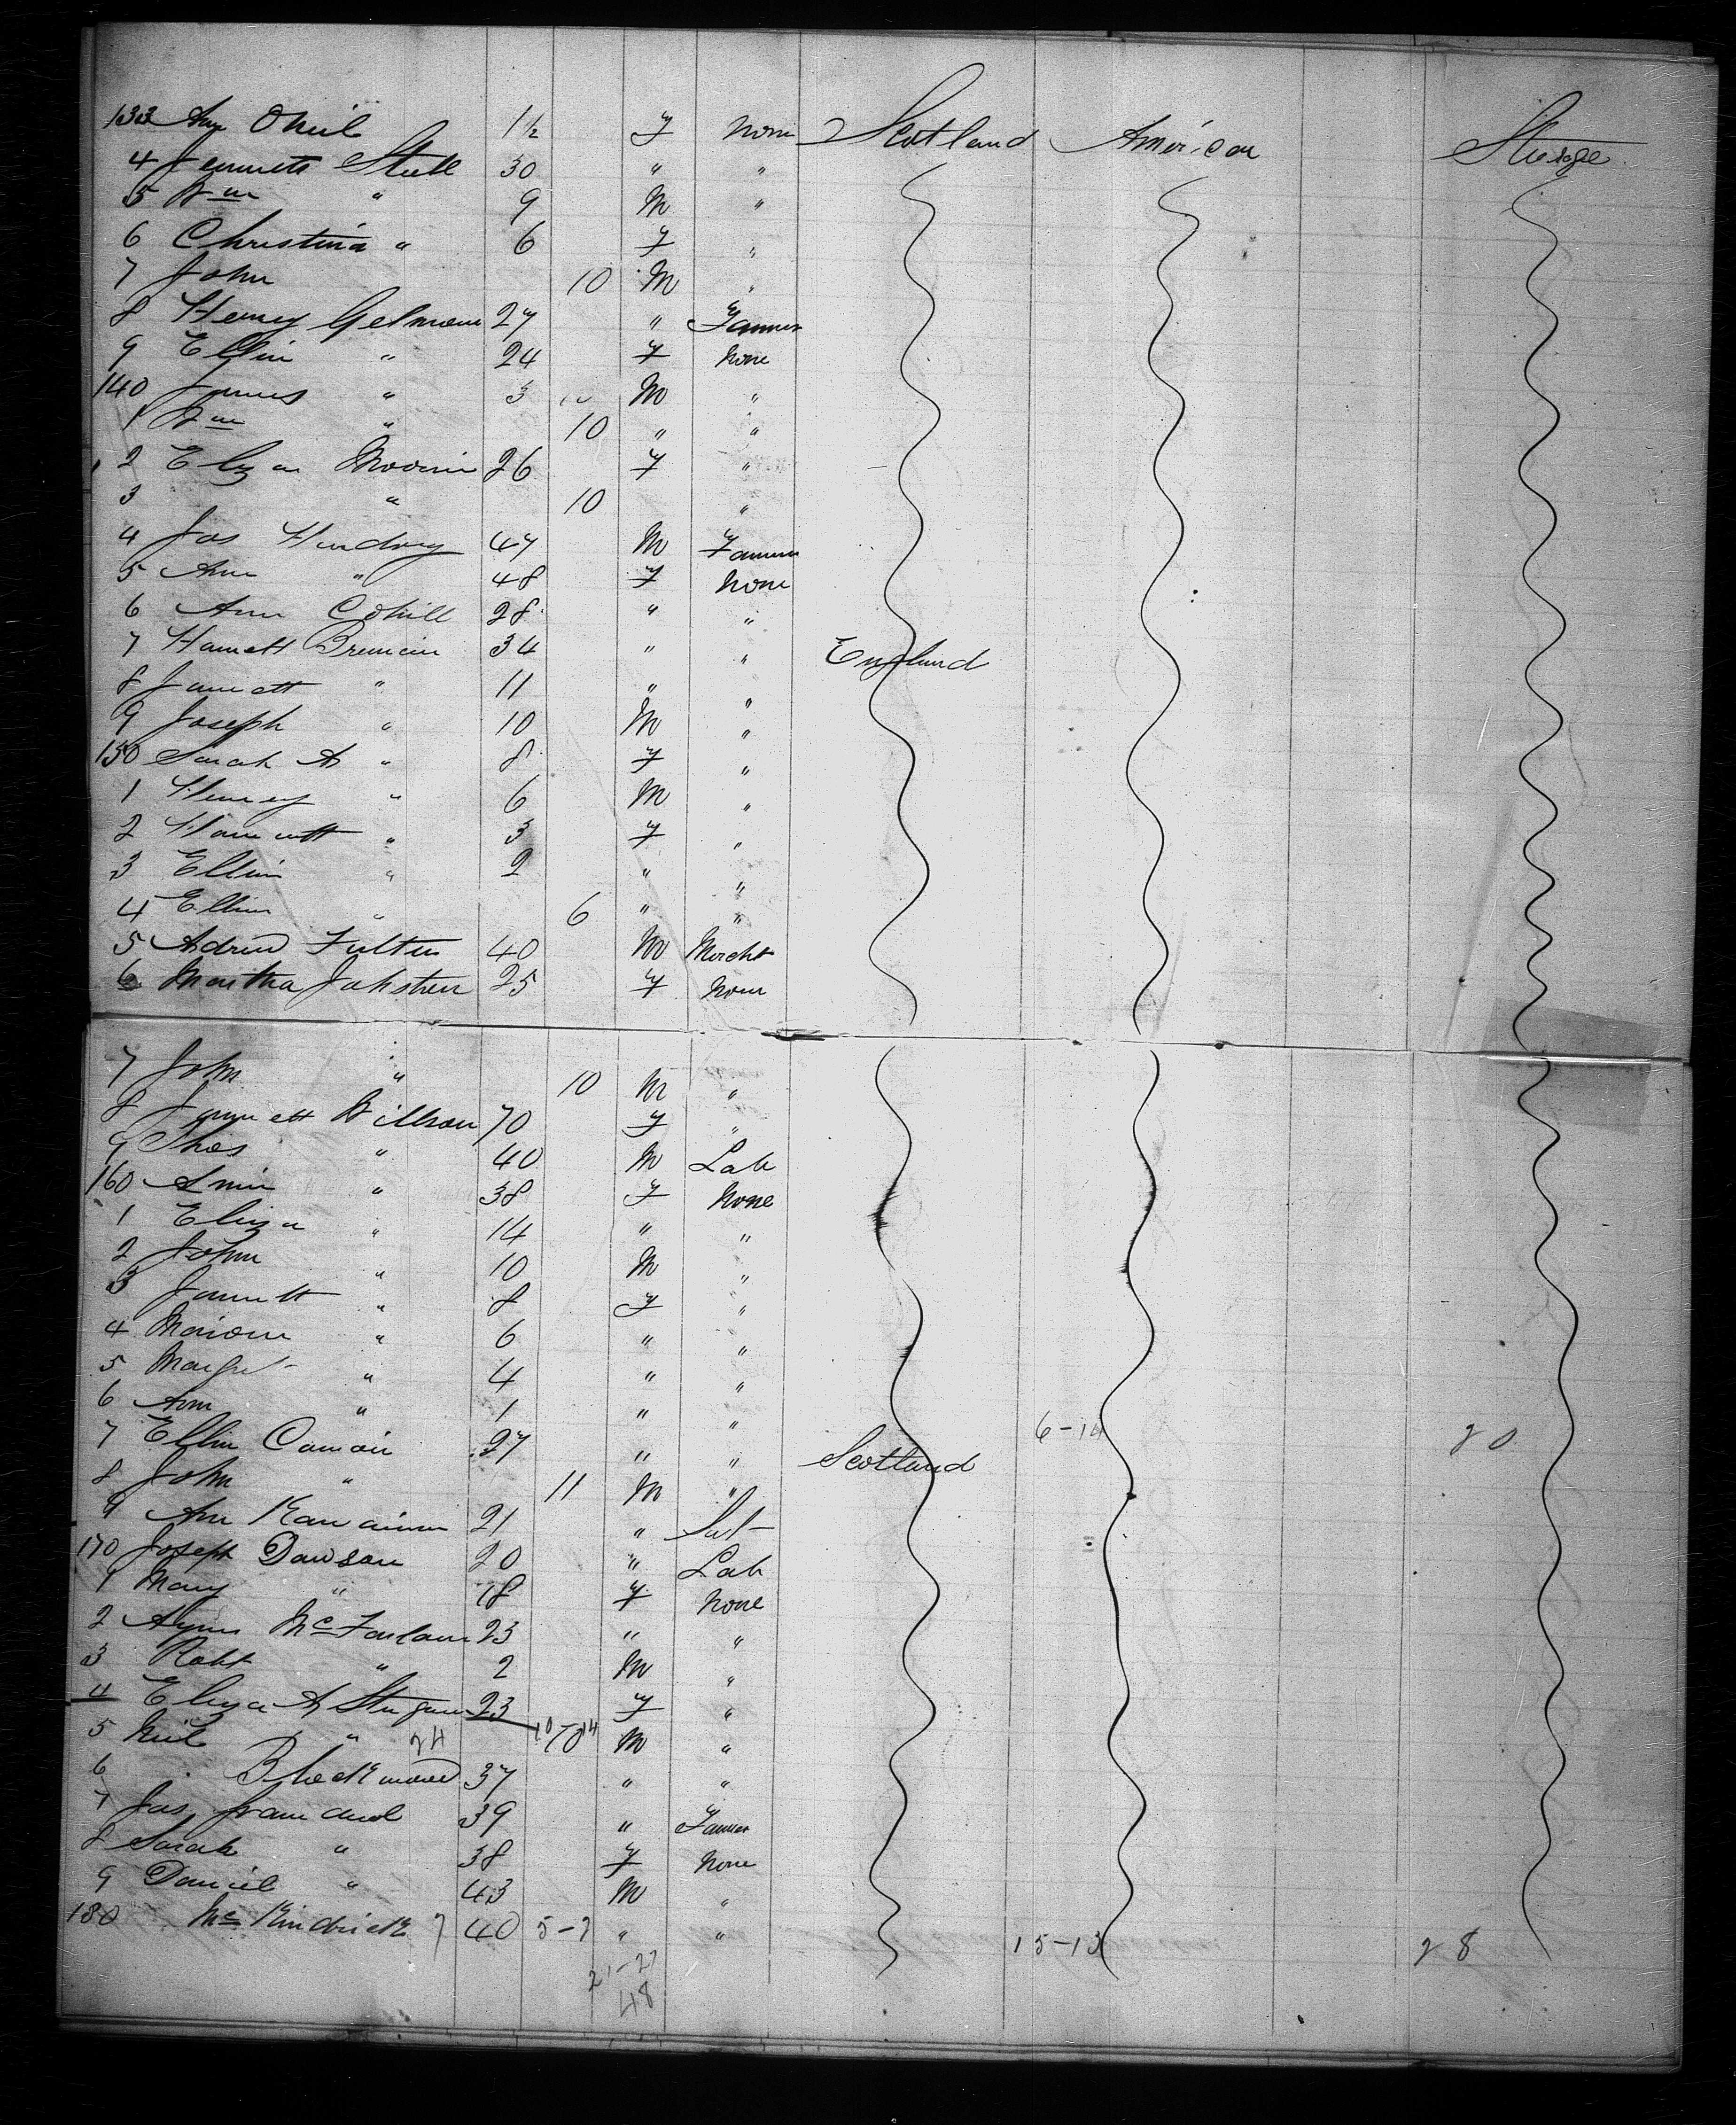 133 Ann Oneil 1½ F None Scotland American Steerage
4 Jennette Steele 30 " "
5 Wm " 9 M "
6 Christina " 6 F "
7 John 10 M "
8 Henry Gelmour 27 " Farmer
9 Ellin " 24 F None
140 James " 3 M "
1 Wm " 10 " "
2 Eliza 26 F "
3 " 10 "
4 Jas Hendry 47 M Farmer
5 Ann " 48 F None
6 Ann Cohill 28 " "
7 Hanett 34 " " England
8 Jannett " 11 " "
9 Joseph " 10 M "
150 Sarah A " 8 F "
1 Henry " 6 M "
2 Hannett " 3 F "
3 Ellin " 2 " "
4 Ellin " 6 " "
5 Andrew Fulton 40 M Mercht
6 Martha Johston 25 F None
7 John " 10 M "
8 Jannett Willson 70 F "
9 Thos " 40 M Lab
160 " 38 F None
1 Eliza " 14 " "
2 John " 10 M "
3 Jannett " 8 F "
4 Marion " 6 " "
5 Margret " 4 " "
6 Ann " 1 " "
7 Ellin 27 " " Scotland 6-14 20
8 John " 11 M "
9 Ann 21 "
170 Joseph Dawson 20 " Lab
1 Mary " 18 F None
2 Agnes McFarlane 23 " "
3 Robt " 2 M "
4 Eliza A 23 F "
5 Neil " 24 10 14 M "
6 37 " "
7 Jas 39 " Farmer
8 Sarah " 38 F None
9 Daniel " 43 M "
180 McKindrick 7 40 5-7 " " 15-13 28
21-27
48